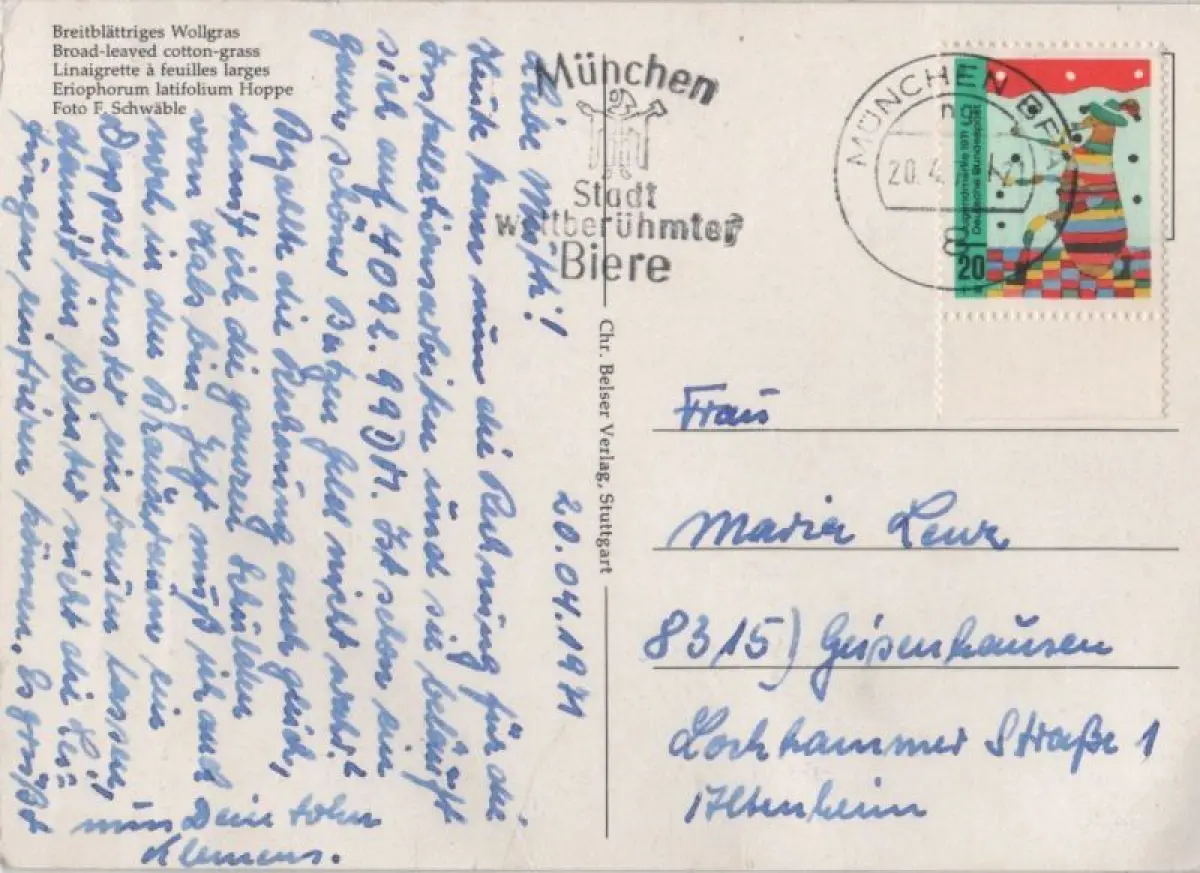 Breitblättriges Wollgras
Broad-leaved cotton-grass
Linaigrette à feuilles larges
Eriophorum latifolium Hoppe
Foto F. Schwäble
München
Stadt
weltberühmter
Biere
MÜNCHEN BPA
20.4.
Jugendmarke 1971
Deutsche Bundespost
20
20.04.1971
Liebe Mutti!
Heute kam nun die Rechnung für die
Installationsarbeiten und sie beläuft
sich auf 4092.99 DM. Ist schon ein
ganz schöner Batzen Geld nicht wahr?
Bezahlte die Rechnung auch gleich,
damit ich die ganzen Schulden
vom Hals bin. Jetzt muß ich auch
noch in den Brauseraum ein
Doppelfenster einbauen lassen,
damit im Winter nicht die Lei-
tungen einfrieren können. Es grüßt
nun Dein Sohn
Klemens.
Chr. Belser Verlag, Stuttgart
Frau
Maria Lenz
8315) Geisenhausen
Lochhammer Straße 1
Altenheim